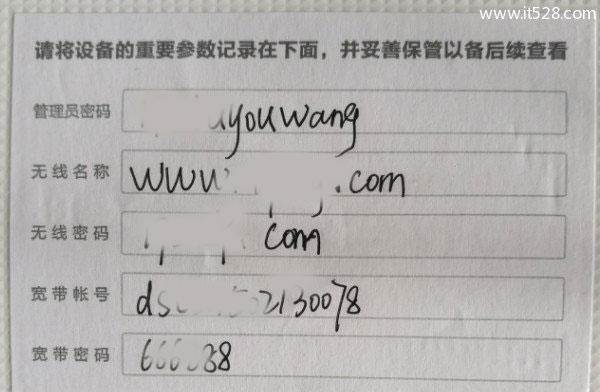 www.it528.com
请将设备的重要参数记录在下面，并妥善保管以备后续查看
管理员密码 uyouwang
无线名称 www. .com
无线密码 com
宽带帐号 ds 2130078
宽带密码 88